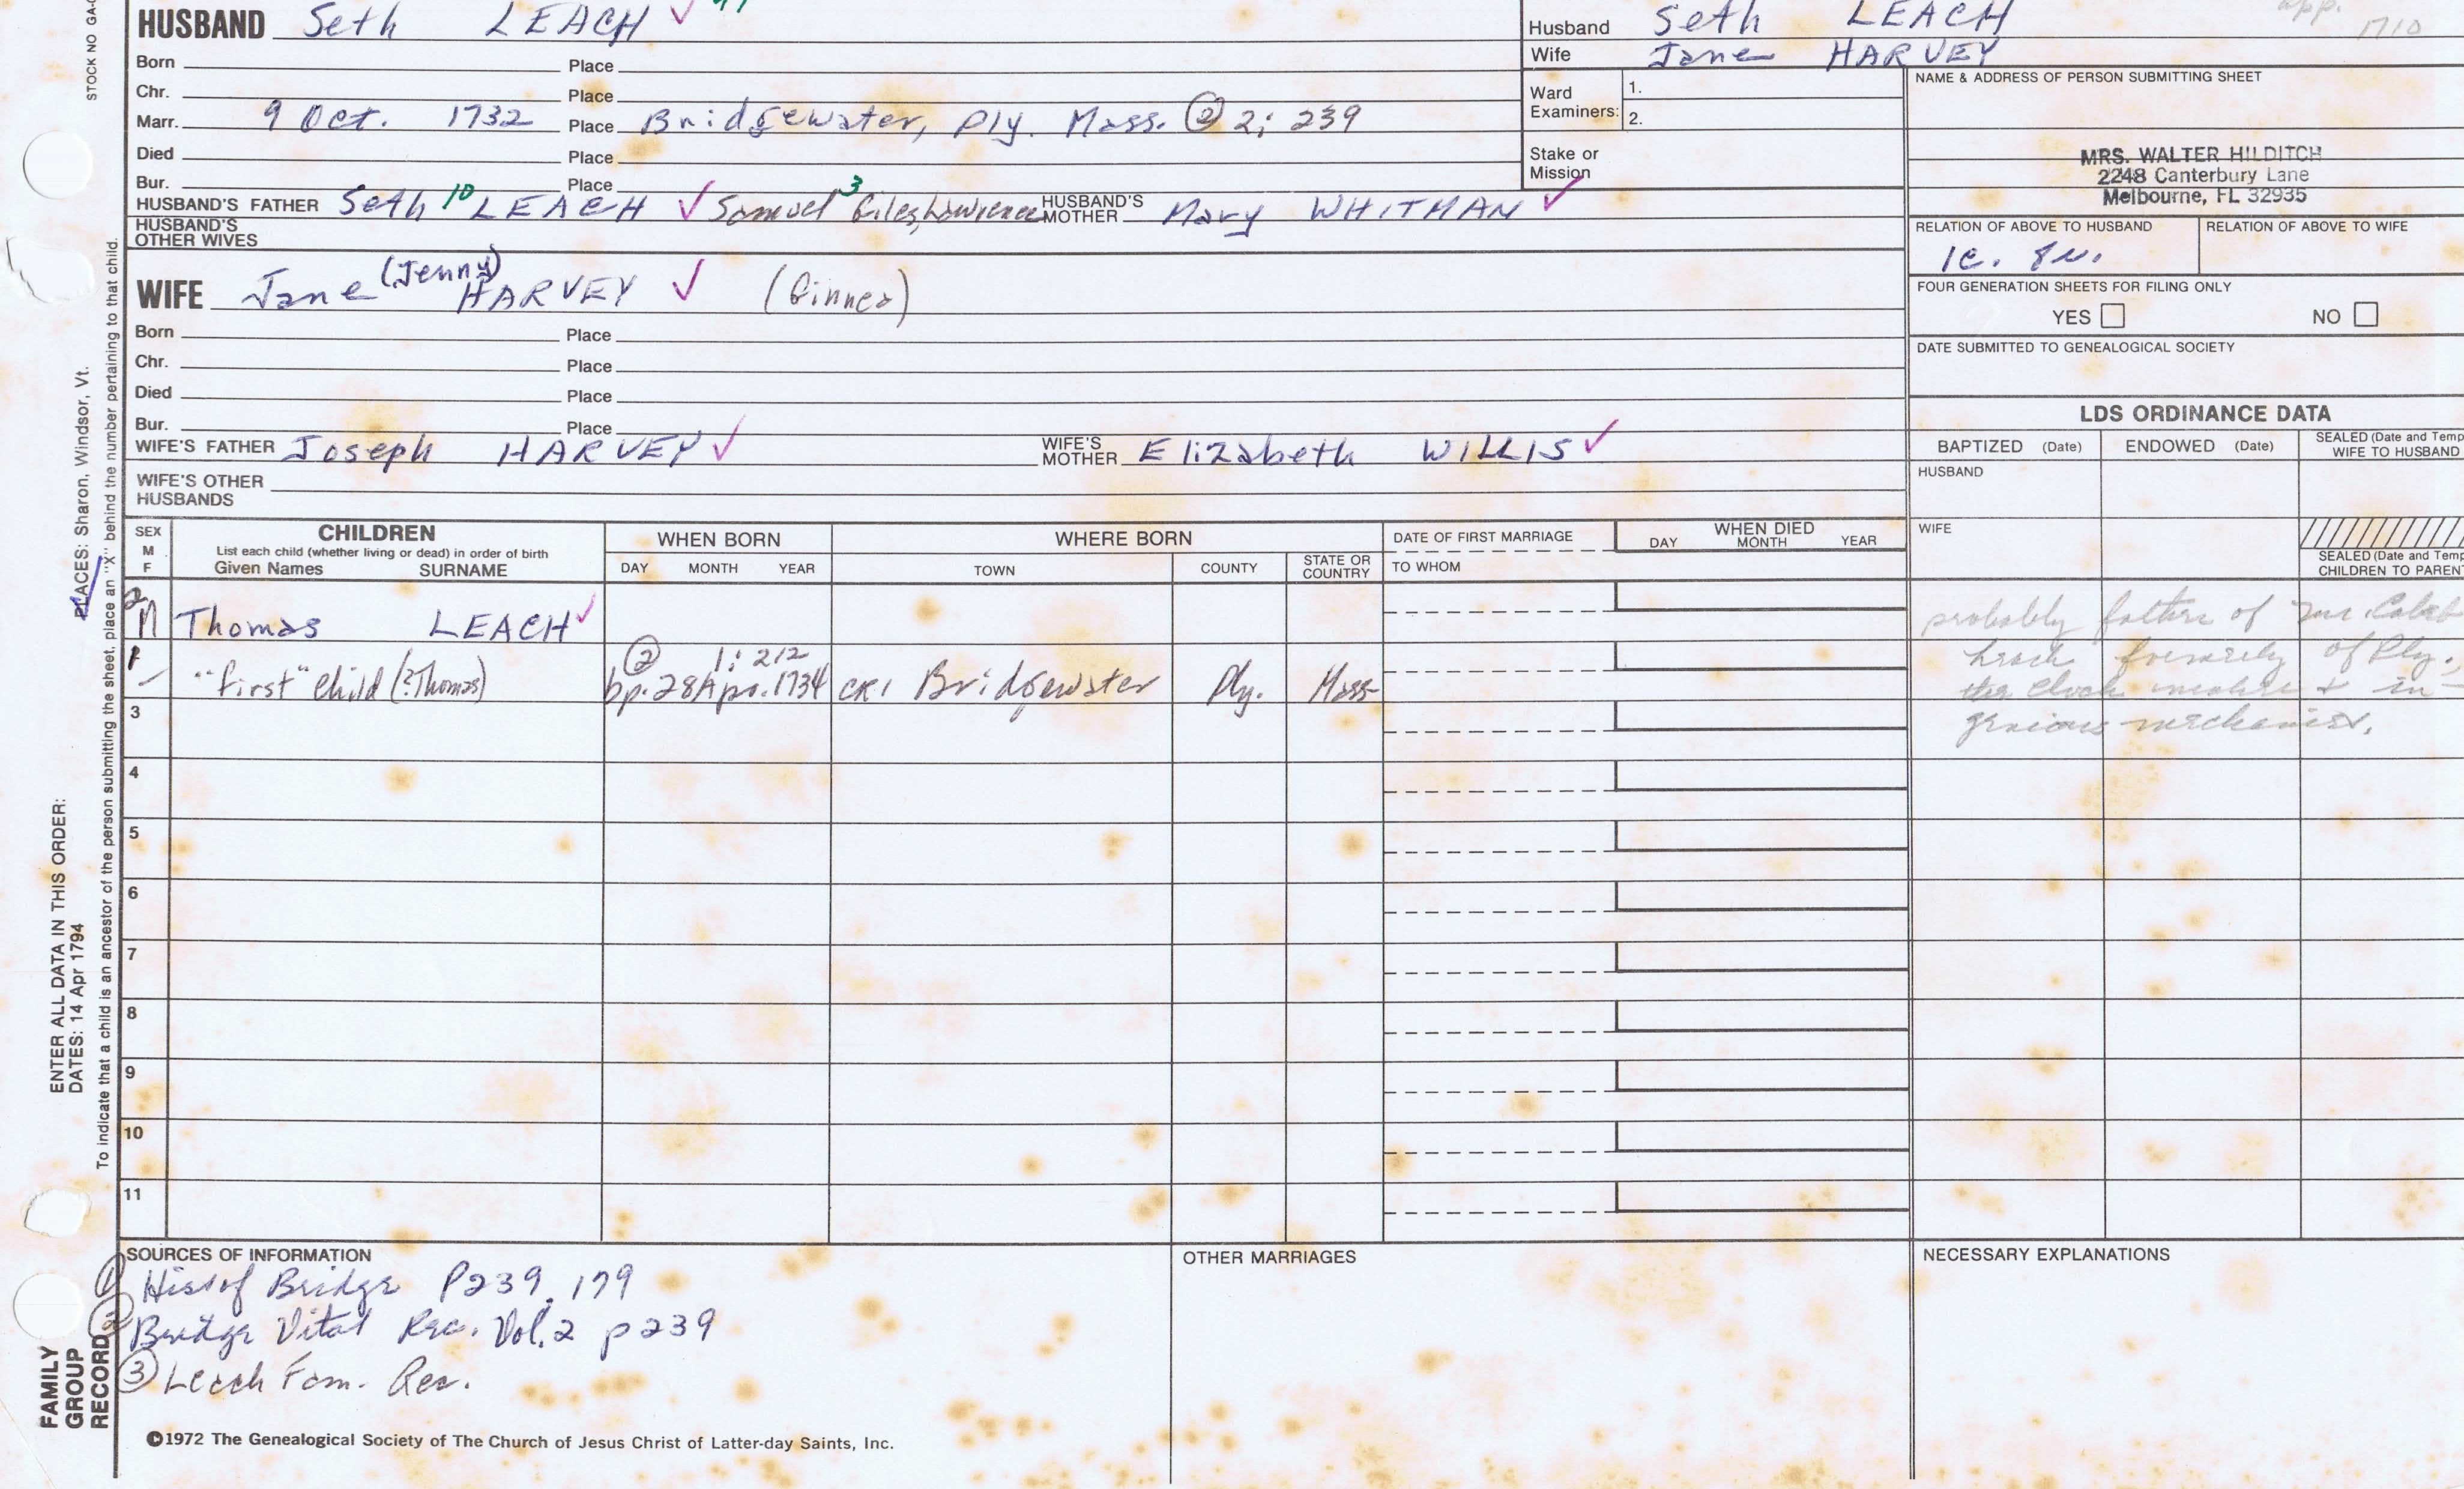 HUSBAND Seth LEACH ✓
Born Place
Chr. Place
Marr. 9 Oct. 1732 Place Bridgewater, Ply. Mass. ② 2; 239
Died Place
Bur. Place
HUSBAND'S FATHER Seth 10 LEACH ✓ Samuel 3 Giles, Lawrence HUSBAND'S MOTHER Mary WHITMAN ✓
HUSBAND'S OTHER WIVES
WIFE Jane (Jenny) HARVEY ✓
Born Place
Chr. Place
Died Place
Bur. Place
WIFE'S FATHER Joseph HARVEY ✓ WIFE'S MOTHER Elizabeth WILLIS ✓
WIFE'S OTHER HUSBANDS
Husband Seth LEACH
Wife Jane HARVEY
app. 1710
Ward Examiners: 1.
2.
Stake or Mission
NAME & ADDRESS OF PERSON SUBMITTING SHEET
MRS. WALTER HILDITCH
2248 Canterbury Lane
Melbourne, FL 32935
RELATION OF ABOVE TO HUSBAND RELATION OF ABOVE TO WIFE
1c. 8r.
FOUR GENERATION SHEETS FOR FILING ONLY
YES NO
DATE SUBMITTED TO GENEALOGICAL SOCIETY
LDS ORDINANCE DATA
BAPTIZED (Date) ENDOWED (Date) SEALED (Date and Temp
WIFE TO HUSBAND
HUSBAND
WIFE
SEALED (Date and Temp
CHILDREN TO PAREN
SEX M F
CHILDREN
List each child (whether living or dead) in order of birth
Given Names SURNAME
WHEN BORN
DAY MONTH YEAR
WHERE BORN
TOWN COUNTY STATE OR COUNTRY
DATE OF FIRST MARRIAGE
TO WHOM
WHEN DIED
DAY MONTH YEAR
2 M Thomas LEACH ✓
② 1: 212
1 "first" child (?Thomas) bp. 28 Apr. 1734 CR1 Bridgewater Ply. Mass
probably father of Mr. Caleb
Leach formerly of Ply.,
the clock maker & in-
genious mechanist.
3
4
5
6
7
8
9
10
11
SOURCES OF INFORMATION
① Hist of Bridge P239, 179
② Bridge Vital Rec. Vol. 2 p 239
③ Leach Fam. Rec.
OTHER MARRIAGES
NECESSARY EXPLANATIONS
©1972 The Genealogical Society of The Church of Jesus Christ of Latter-day Saints, Inc.
FAMILY
GROUP
RECORD
ENTER ALL DATA IN THIS ORDER:
DATES: 14 Apr 1794
PLACES: Sharon, Windsor, Vt.
To indicate that a child is an ancestor of the person submitting the sheet, place an "X" behind the number pertaining to that child.
STOCK NO GA-